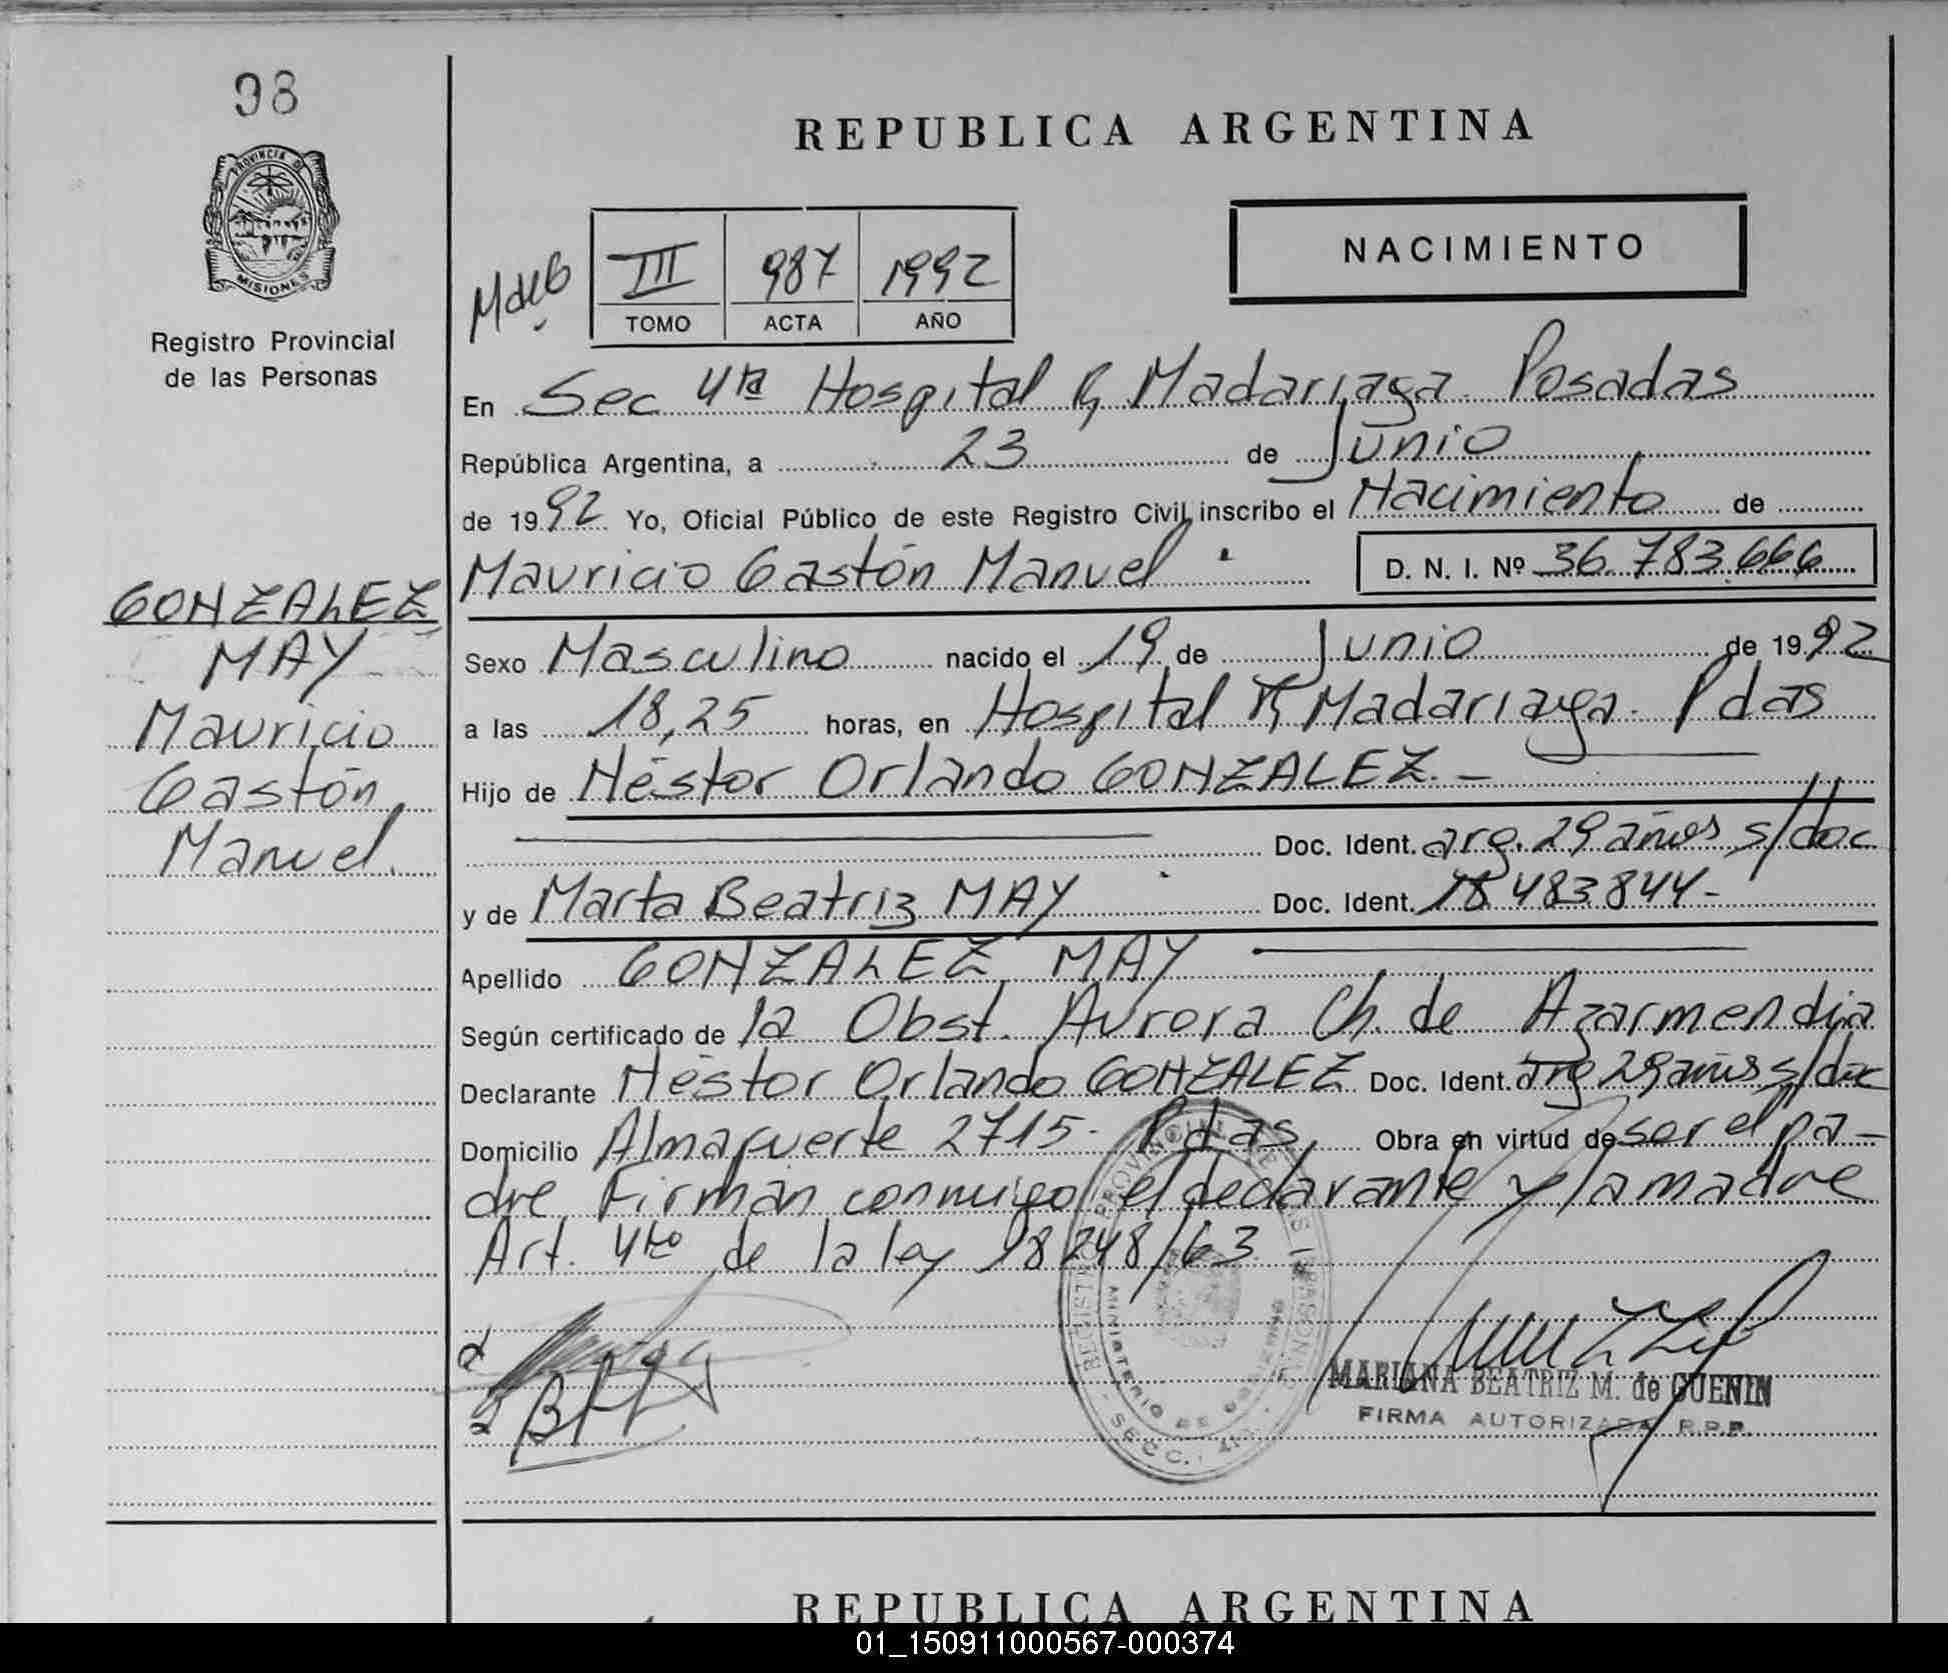 98
PROVINCIA DE
MISIONES
Registro Provincial
de las Personas
REPUBLICA ARGENTINA
NACIMIENTO
III 987 1992
TOMO ACTA AÑO
En Sec 4ta Hospital R, Madariaga. Posadas
República Argentina, a 23 de Junio
de 1992 Yo, Oficial Público de este Registro Civil, inscribo el Nacimiento de
Mauricio Gastón Manuel D. N. I. Nº 36.783.666
GONZALEZ
MAY
Mauricio
Gastón
Manuel.
Sexo Masculino nacido el 19 de Junio de 1992
a las 18,25 horas, en Hospital R, Madariaga. Pdas
Hijo de Néstor Orlando GONZALEZ. -
Doc. Ident. arg. 29 años s/doc
y de Marta Beatriz MAY Doc. Ident. 18.483.844-
Apellido GONZALEZ MAY
Según certificado de la Obst. Aurora Ch. de Azarmendia
Declarante Néstor Orlando GONZALEZ Doc. Ident. arg 29 años s/doc
Domicilio Almafuerte 2715- Pdas, Obra en virtud de ser el pa-
dre Firman conmigo el declarante y la madre
Art. 4to de la ley 18248/63 -
MARIANA BEATRIZ M. de GUENIN
FIRMA AUTORIZADA R.P.P.
REPUBLICA ARGENTINA
01_150911000567-000374